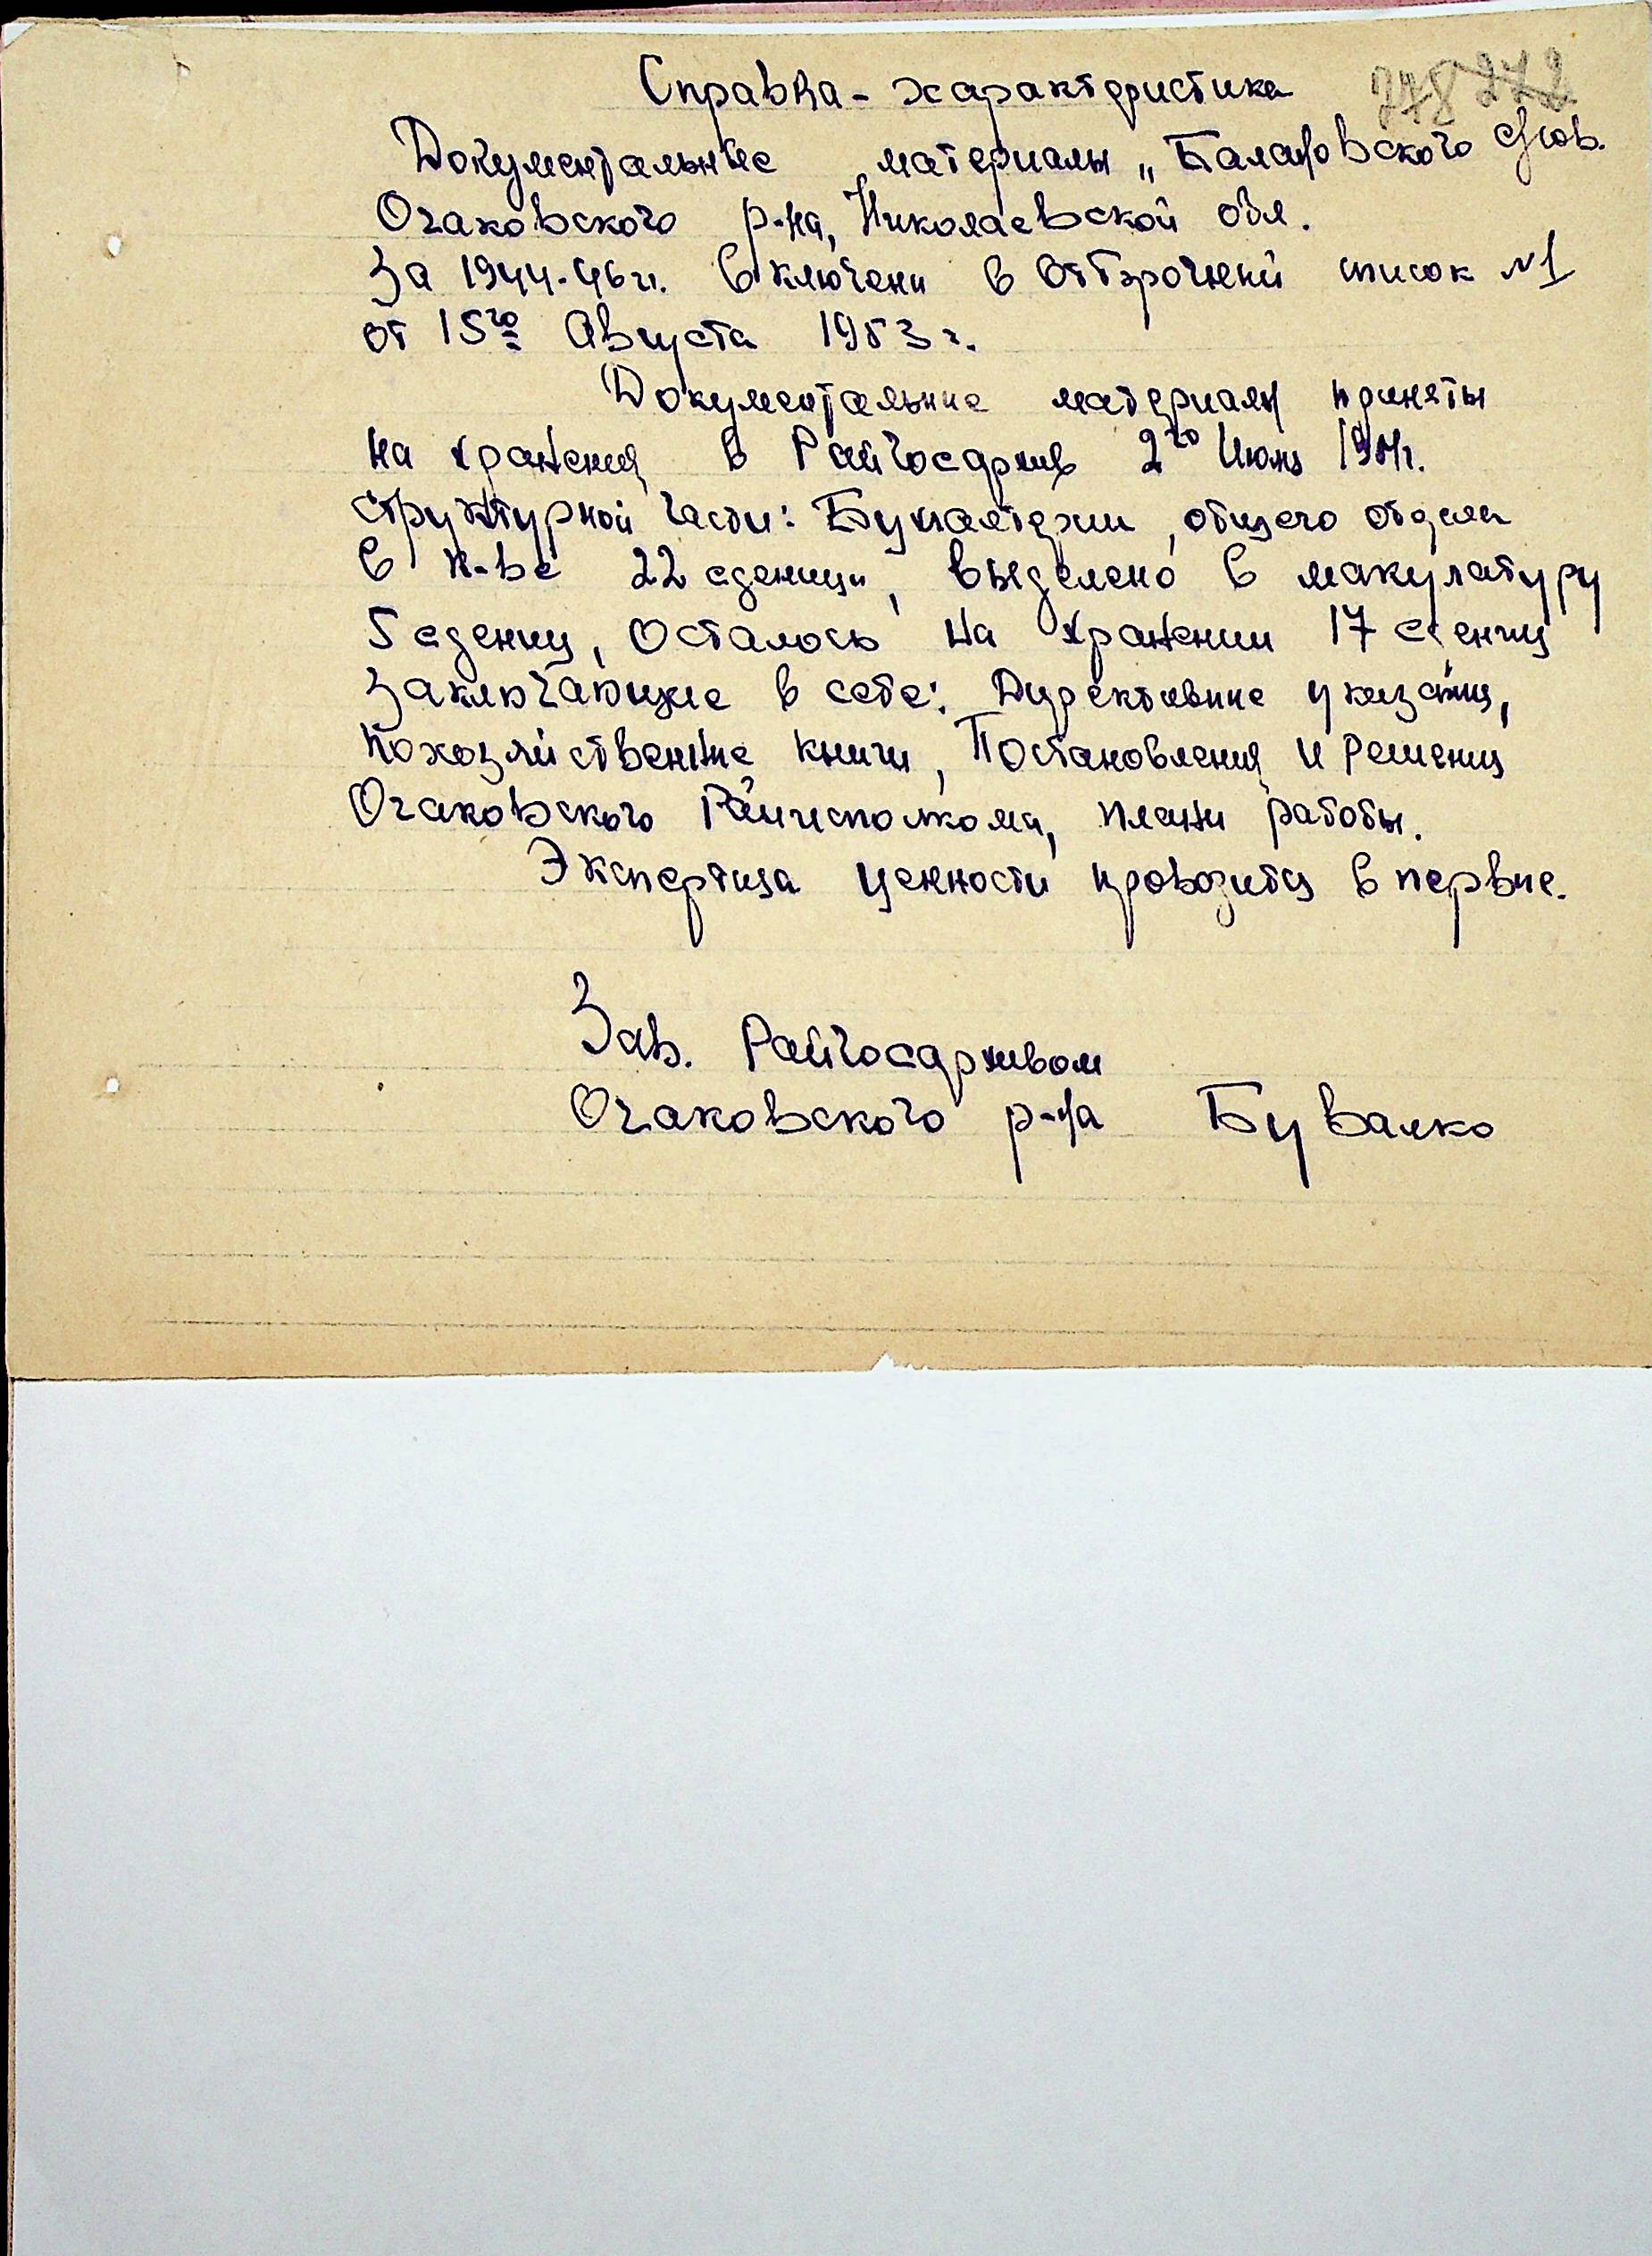 Справка - характеристика
Документальные материалы „Балаповского с/сов.
Очаковского р-на, Николаевской обл.
За 1944-46 гг. включени в отборочней список №1
от 15го Августа 1953 г.
Документальние материалы приняты
на хранения в Райгосархив 2го Июня
структурной части: Бухгалтерии, общего отдела
в к-ве 22 еденици, выделено в макулатуру
5 едениц, осталось на хранении 17 едениц
заключающие в себе: Директивние указания,
Похозяйственные книги, Постановления и Решения
Очаковского Райисполкома, плани работы.
Экспертиза ценности проводится в первие.
Зав. Райгосархивом
Очаковского р-на Бувалко